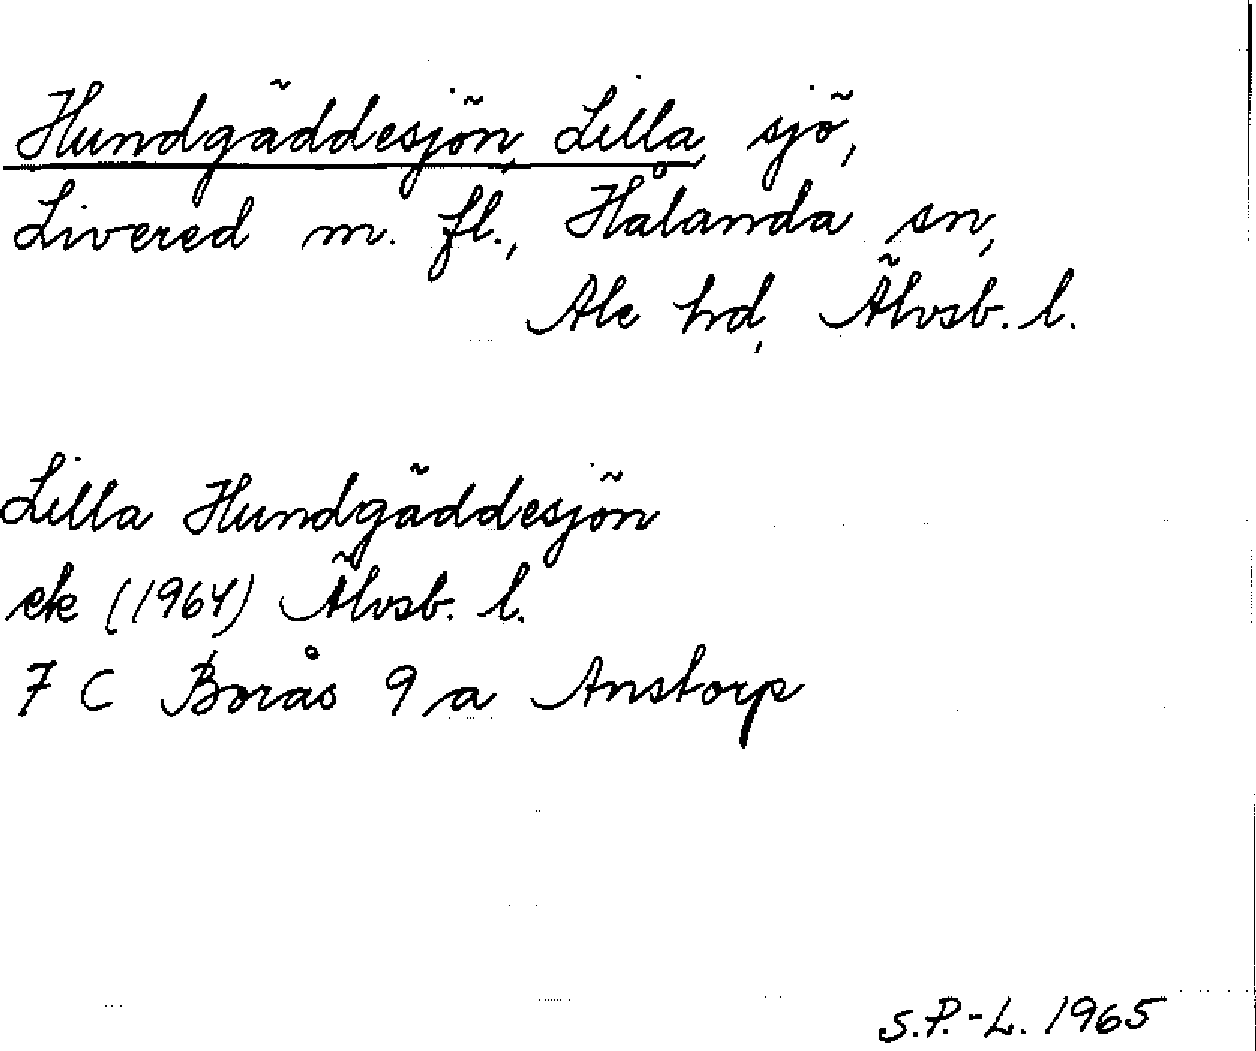 Hundgäddesjön, Lilla, sjö,
Livered m. fl., Hålanda sn,
Ale hd, Älvsb. l.
Lilla Hundgäddesjön
ek (1964) Älvsb. l.
7 C Borås 9 a Anstorp
S.P.-L. 1965